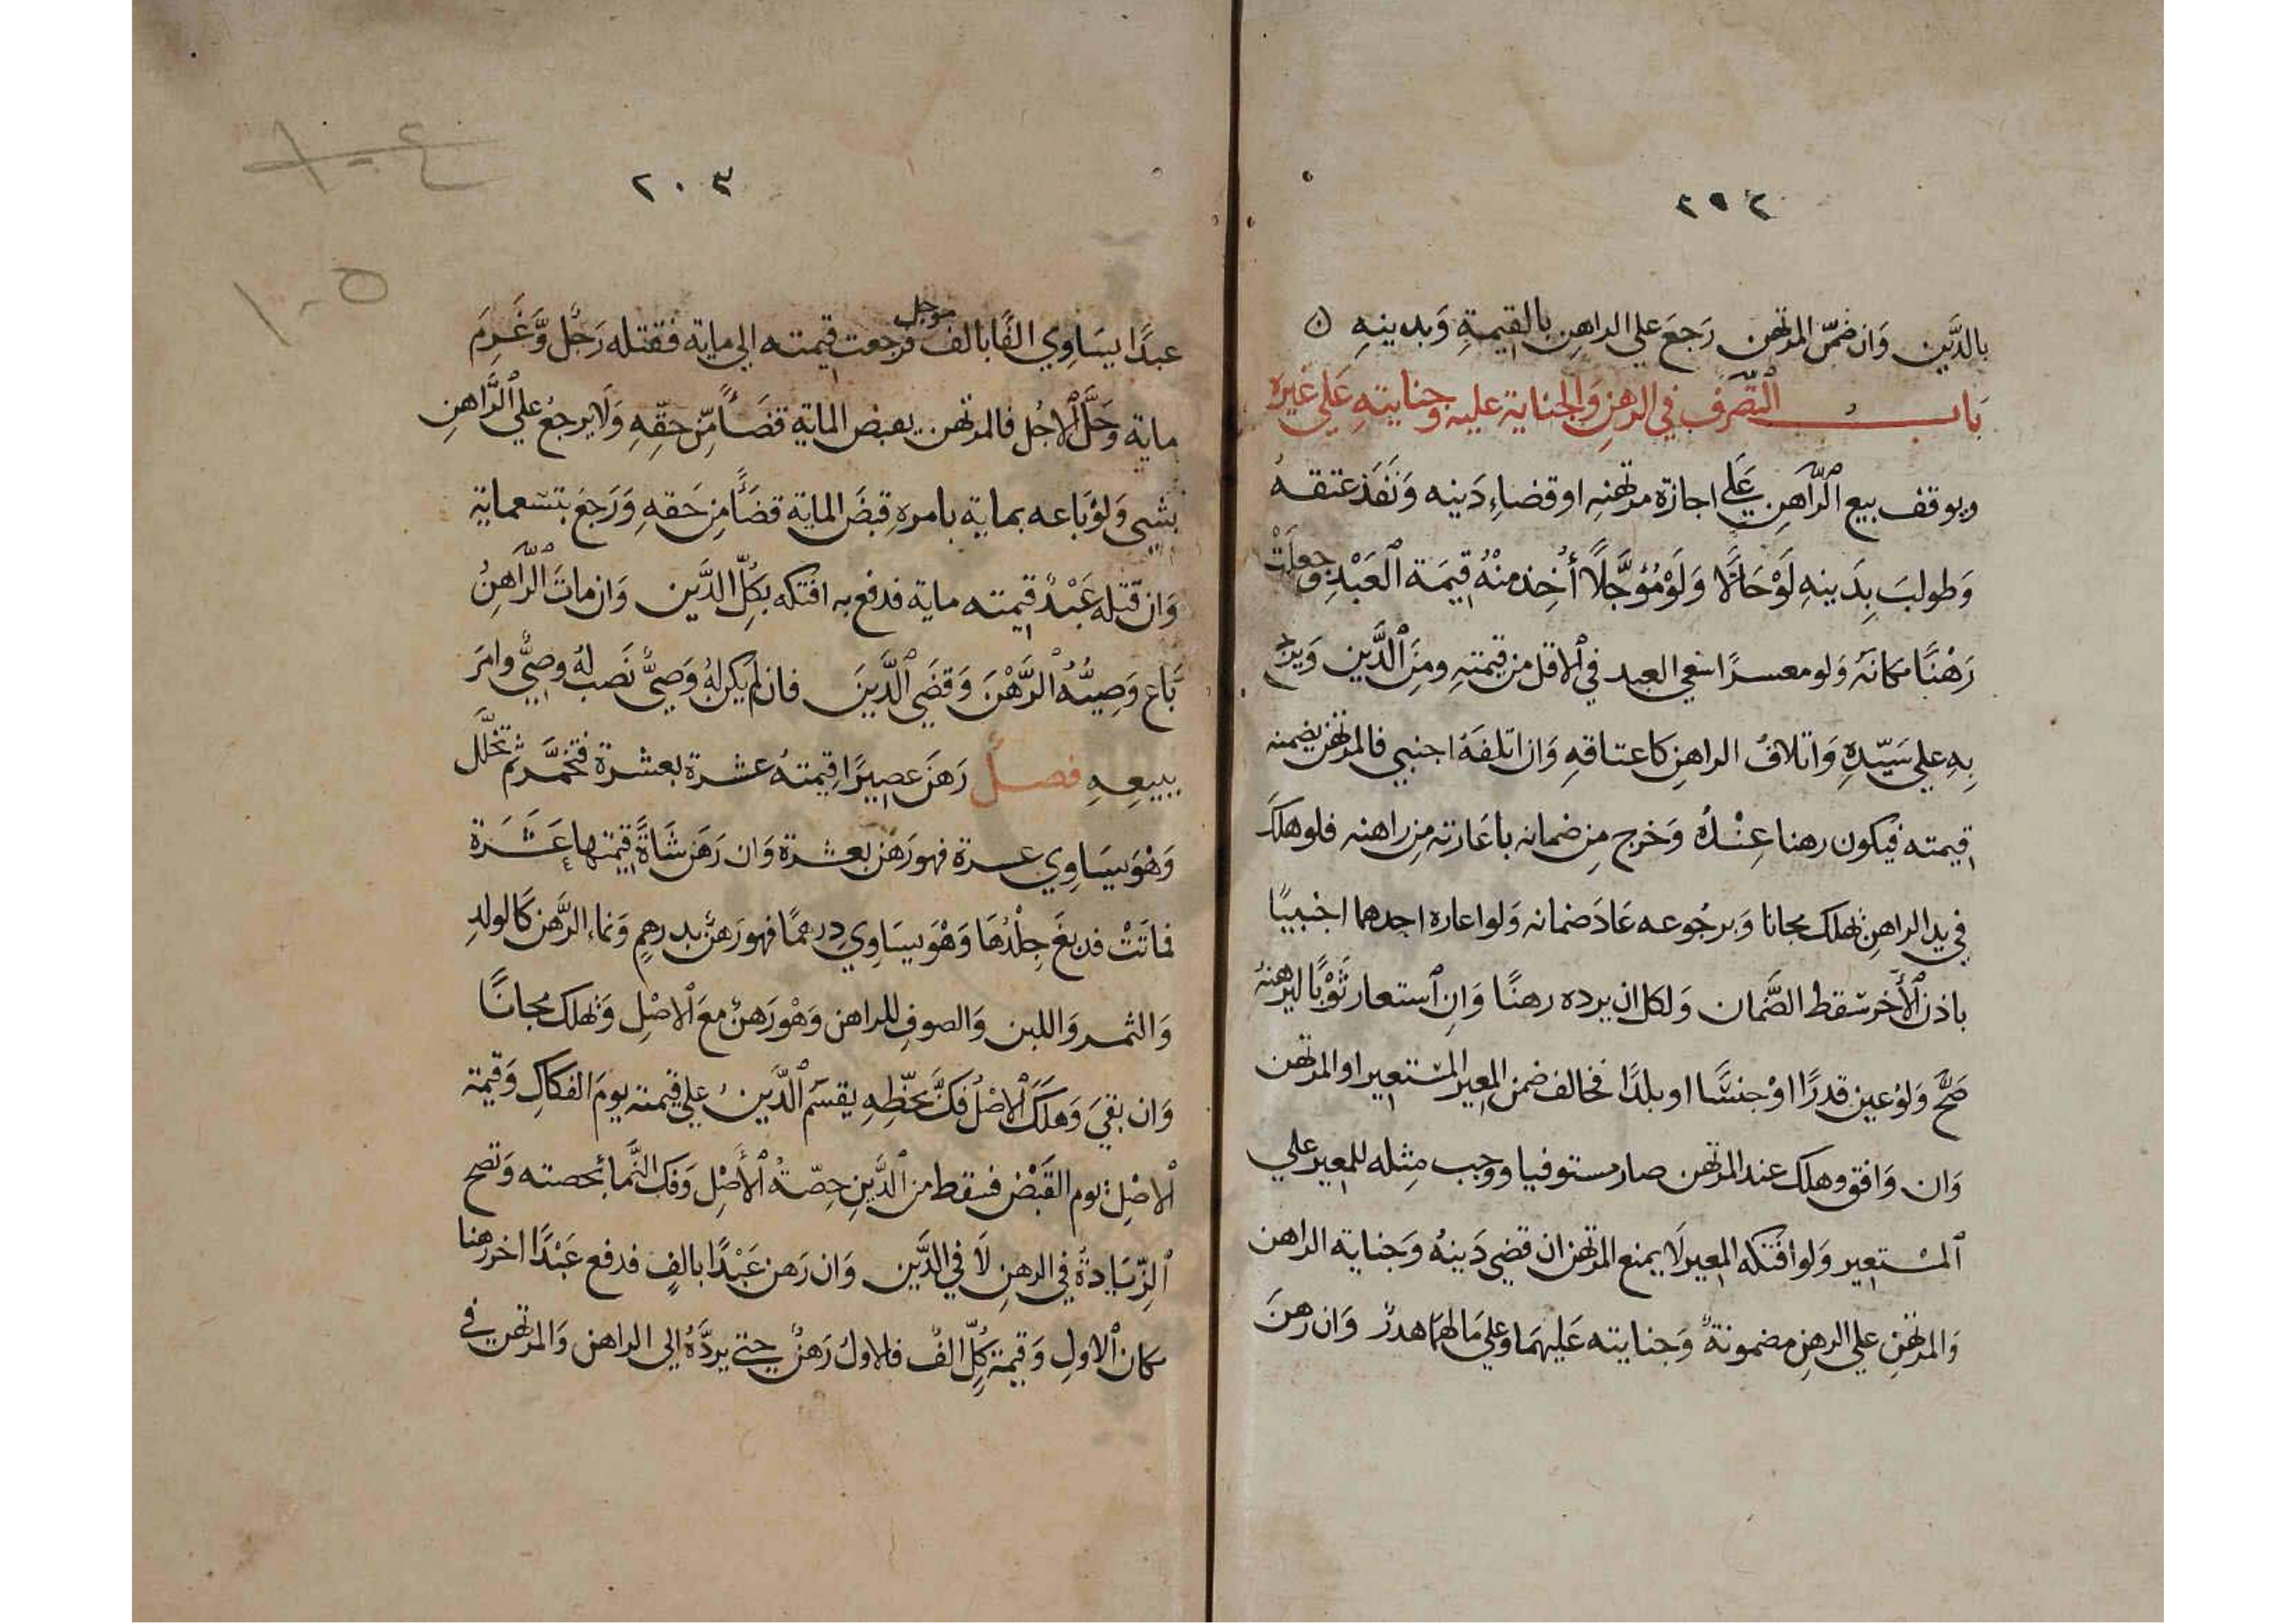 ٢٩٢
بالدَّين وَان ضمّن المرتهن رَجَعَ علي الراهِن بالقيمةِ وَبدينهِ
بَابُ التَّصَرف في الرهنِ وَالجناية عليه وجنايتهِ عَلي غيره
ويوقف بيع الرَّاهِن عَلي اجازة مرتهنِهِ او قضاءِ دَينه وَنَفَذَ عتقهُ
وَطولبَ بِدَينهِ لَوْ حَالًّا وَلَوْ مُؤجَّلًا أُخِذ منْهُ قِيمَة العَبْدِ وَجعلَتْ
رَهْنًا مكانَهُ وَلو معسرًا سَعي العبد في الاقل من قيمتهِ ومِنَ الدَّين وَيرجع
بِهِ علي سَيّدِهِ وَاتلافُ الراهِنِ كاعتاقهِ وَان اتلفَهُ اجنبي فالمرتهن يضمنه
قيمته فيكون رهنا عِنْدَهُ وَخرج من ضمانه باعَارته من راهنه فلو هلك
في يد الراهن هلك مجانا وَبرجُوعه عَادَ ضمانه وَلو اعاره احدهما اجنبيًا
باذن الأخر سَقط الضَّمان وَلكل ان يرده رهنًا وَاِن استعار ثَوْبًا ليرهنهُ
صَحَّ وَلوْ عين قدرًا اوْ جنسًا او بلدًا فخالف ضمن المعير المستعير او المرتهن
وَان وَافق وهلك عند المرتهن صار مستوفيا ووجب مِثله للمعير علي
المسْتعير وَلو افتكه المعير لَا يمنع المرتهن ان قضي دَينهُ وَجناية الراهن
وَالمرتهنِ علي الرهنِ مضمونةٌ وَجنايته عَليهمَا وعلي مَالهمَا هدرٌ وَان رهنَ
٢٠٣
عبدًا يسَاوِي الفًا بالف موجل فرجعت قيمته الي ماية فقتله رَجُل وَّغَرِمَ
ماية وَحَلَّ الاجُل فالمرتهن يقبض الماية قضَاًمّن حقّهِ وَلَا يرجعُ علي الرَّاهنِ
بشي وَلوْ بَاعه بماية بامره قبضَ الماية قضَاً من حَقهِ وَرَجعَ بتسعماية
وَان قتله عَبْدٌ قيمته ماية فدفع به افتكه بكلّ الدَّين وَان ماتَ الرَّاهنُ
بَاع وَصِيُّهُ الرَّهْنَ وَقضَي الدَّينَ فان لم يكن لهُ وَصيٌّ نَصب لهُ وصيٌّ وامرَ
ببيعِهِ فصلٌ رَهنَ عصِيرًا قيمتهُ عشرة بعشرة فتخمَّر ثم تخلَّل
وَهْوَ يسَاوِي عسرة فهو رَهن بعشرة وَان رَهَن شَاةً قيمتها عَشَرَة
فماتَتْ فدبغَ جِلْدُهَا وَهْوَ يسَاوِي درهمًا فهو رَهنٌ بدرهمٍ وَنماء الرَّهن كالولدِ
وَالثمر وَاللبن وَالصوفِ للراهن وَهْو رَهنٌ معَ الاصْلِ وَهلك مجانًا
وَان بقيَ وَهلَكَ الاصْلُ فكَّ بحظِّهِ يقسَّمُ الدَّينُ علي قيمته يومَ الفكاكِ وَقيمة
الاصْلِ يوم القَبْض فسقط من الدَّينِ حِصّةُ الأصْلِ وَفك النَّما بحصته وَتصح
الزّيَادةُ في الرهنِ لَا في الدَّين وَان رَهن عَبْدًا بالفٍ فدفع عَبْدًا اخر رهنا
مكان الاولِ وَقيمة كُلّ الفٌ فالاولُ رَهنٌ حتي يردَّهُ الي الراهن وَالمرتهن في
١٠٥